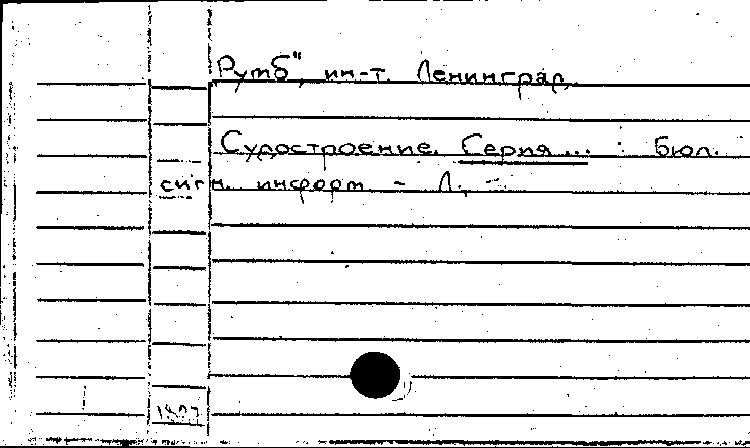 "Румб", ин-т. Ленинград.
Судостроение. Серия... : бюл.
сигн. информ. - Л., -